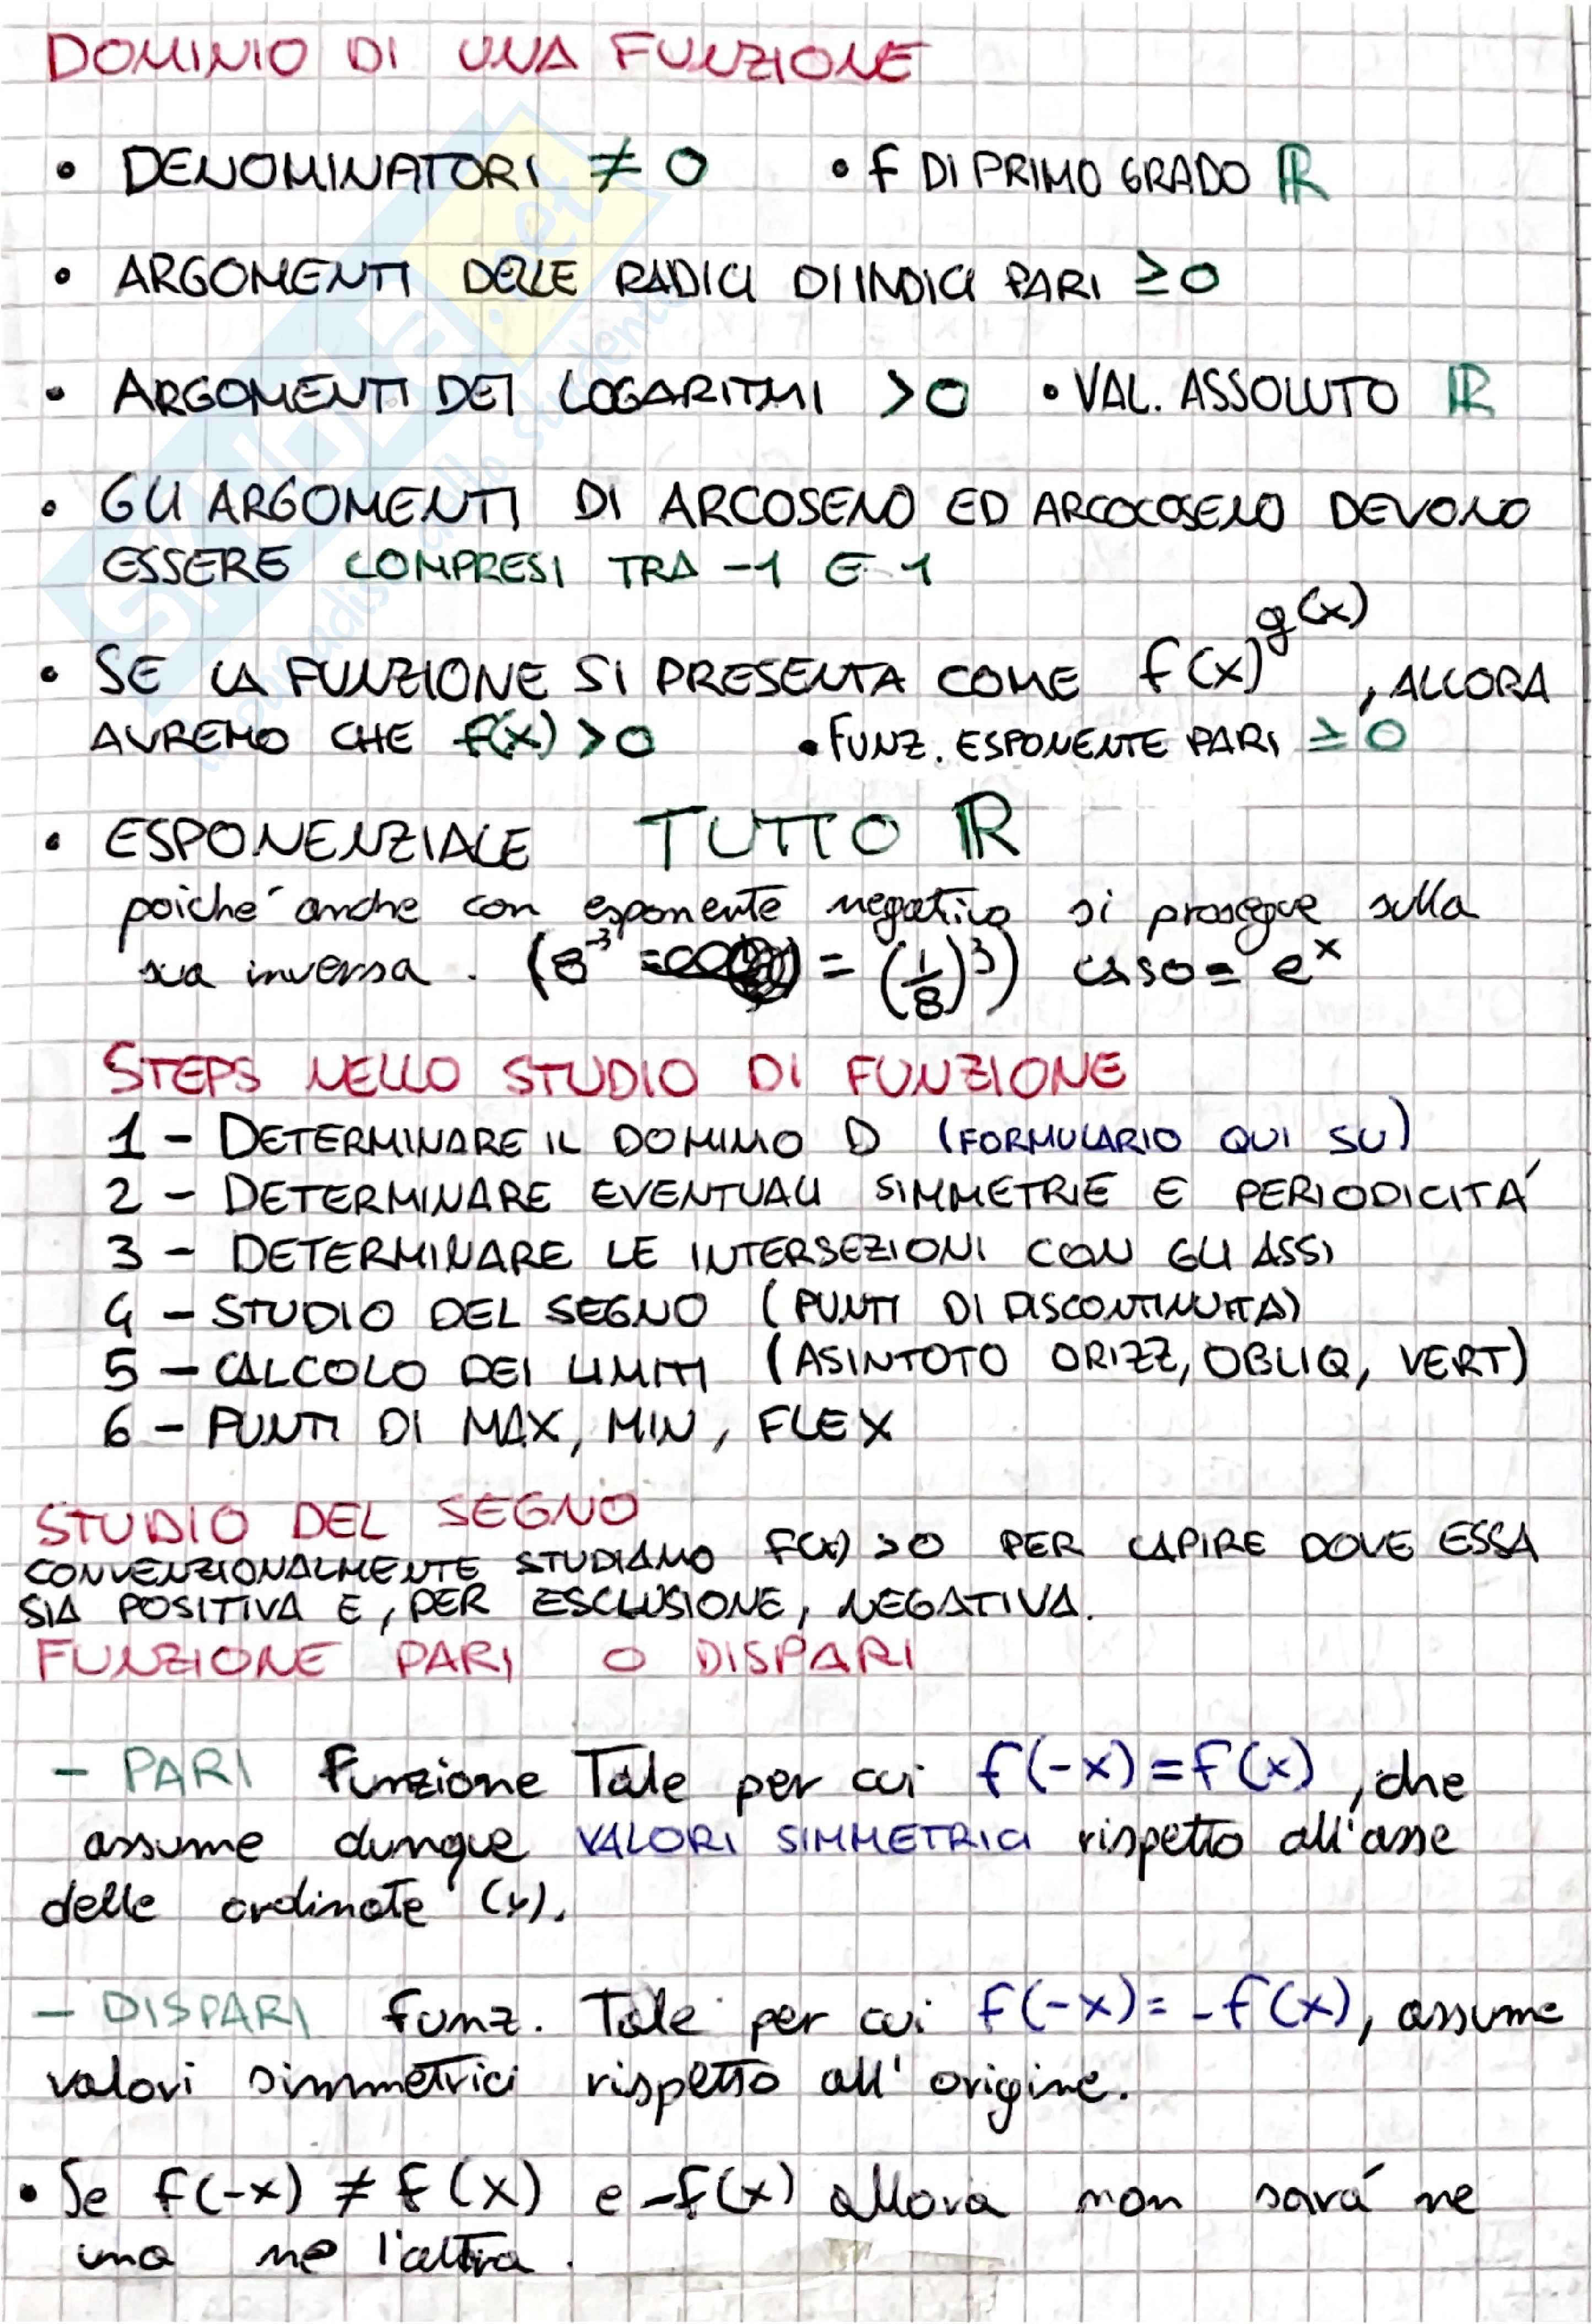 DOMINIO DI UNA FUNZIONE
• DENOMINATORI ≠ 0 • f DI PRIMO GRADO ℝ
• ARGOMENTI DELLE RADICI DI INDICI PARI ≥ 0
• ARGOMENTI DEI LOGARITMI > 0 • VAL. ASSOLUTO ℝ
• GLI ARGOMENTI DI ARCOSENO ED ARCOCOSENO DEVONO
ESSERE COMPRESI TRA -1 E 1
• SE LA FUNZIONE SI PRESENTA COME f(x)^g(x), ALLORA
AVREMO CHE f(x) > 0 • FUNZ. ESPONENTE PARI ≥ 0
• ESPONENZIALE TUTTO ℝ
poiché anche con esponente negativo si prosegue sulla
sua inversa. (8^-3 = (1/8)^3) caso = e^x
STEPS NELLO STUDIO DI FUNZIONE
1 - DETERMINARE IL DOMINIO D (FORMULARIO QUI SU)
2 - DETERMINARE EVENTUALI SIMMETRIE E PERIODICITÁ
3 - DETERMINARE LE INTERSEZIONI CON GLI ASSI
4 - STUDIO DEL SEGNO (PUNTI DI DISCONTINUITA)
5 - CALCOLO DEI LIMITI (ASINTOTO ORIZZ, OBLIQ, VERT)
6 - PUNTI DI MAX, MIN, FLEX
STUDIO DEL SEGNO
CONVENZIONALMENTE STUDIAMO F(x) > 0 PER CAPIRE DOVE ESSA
SIA POSITIVA E, PER ESCLUSIONE, NEGATIVA.
FUNZIONE PARI O DISPARI
- PARI Funzione Tale per cui f(-x) = f(x), che
assume dunque VALORI SIMMETRICI rispetto all'asse
delle ordinate (y).
- DISPARI funz. Tale per cui f(-x) = -f(x), assume
valori simmetrici rispetto all'origine.
• Se f(-x) ≠ f(x) e -f(x) allora non sará ne
una ne l'altra.
SKUOLA.net